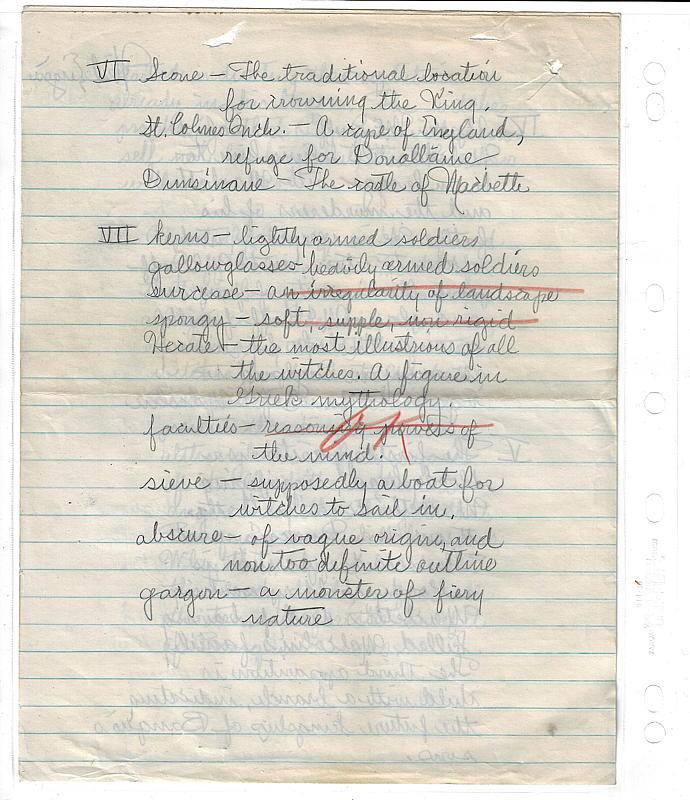 VI Scone - The traditional location
for crowning the King.
St. Colmes Inch. - A cape of England,
refuge for Donalbaine
Dunsinane - The castle of Macbette
VII kerns - lightly armed soldiers
gallowglasses - heavily armed soldiers
surcease - an irregularity of landscape
spongy - soft, supple, non rigid
Hecate - the most illustrious of all
the witches. A figure in
Greek mythology.
faculties - reasoning powers of
the mind.
sieve - supposedly a boat for
witches to sail in.
obscure - of vague origin, and
non too definite outline
gorgon - a monster of fiery
nature